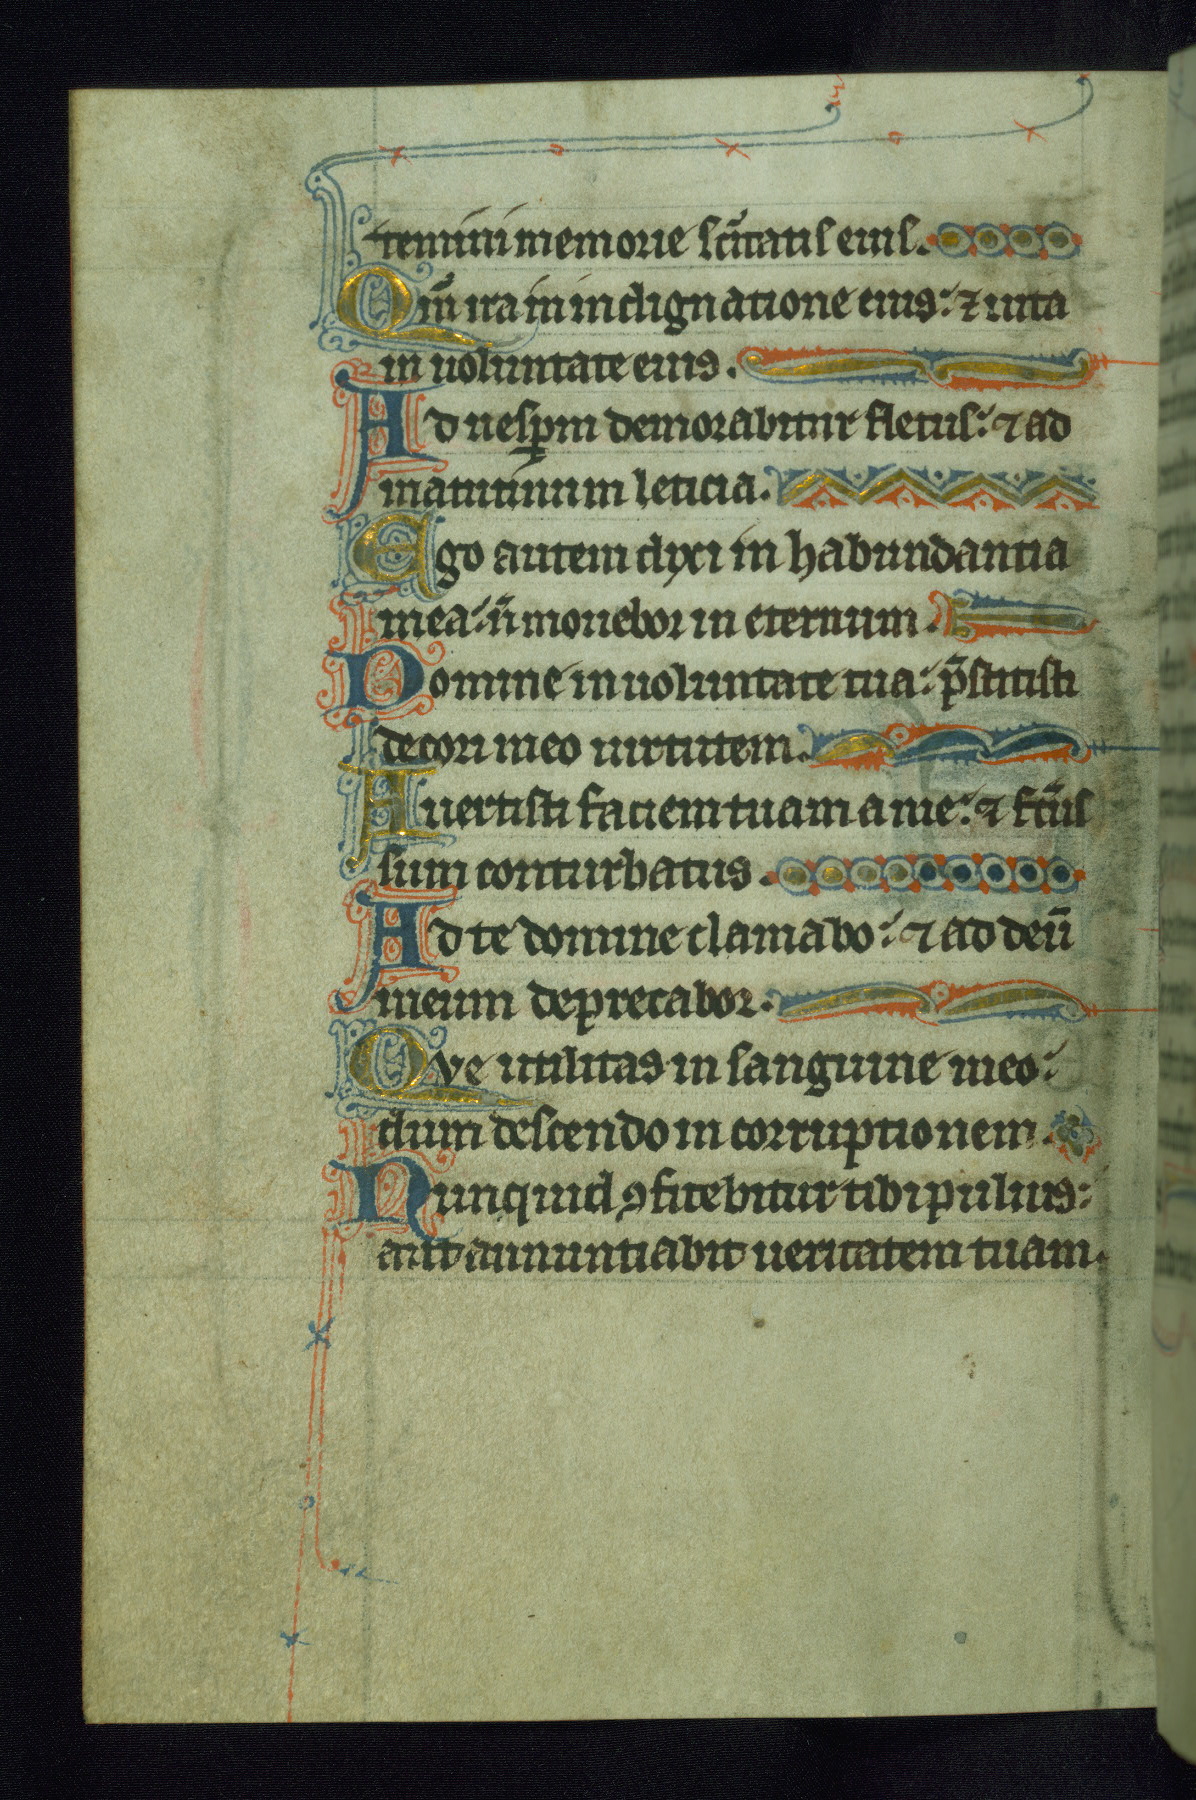 temini memorie sc̄itatis eius.
Qm̄ ira in indignatione eius: ⁊ uita
in uoluntate eius.
Ad uesꝑm demorabitur fletus: ⁊ ad
matutinum leticia.
Ego autem dixi in habundantia
mea: n̄ mouebor in eternum.
Domine in uoluntate tua: p̄stitisti
decori meo uirtutem.
Auertisti faciem tuam a me: ⁊ fc̄us
sum conturbatus.
Ad te domine clamabo: ⁊ ad deū
meum deprecabor.
Que utilitas in sanguine meo:
dum descendo in corruptionem.
Nunquid ꝯfitebitur tibi puluis:
aut annuntiabit ueritatem tuam.